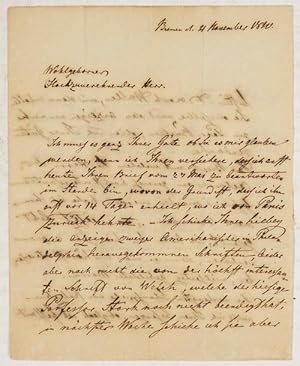 Bremen d. 21 November 1840.
Wohlgeborner
Hochzuverehrender Herr.
Ich muß es ganz Ihrer Güte ob Sie es mir glauben
werden, wenn ich Ihnen versichere, daß ich erst
heute Ihren Brief vom 27 Mai zu beantworten
im Stande bin, wovon der Grund ist, daß ich ihn
erst vor 14 Tagen erhielt, als ich von Paris
zurück kehrte. Ich schicke Ihnen
die Anzeigen zweier Amerikanischer in Phila
delphia herausgekommnen Schriften, leider
aber noch nicht die von der höchst interessan
ten Schrift von, welche der hiesige
Professor noch nicht beendigt hat;
in nächster Woche schicke ich sie aber